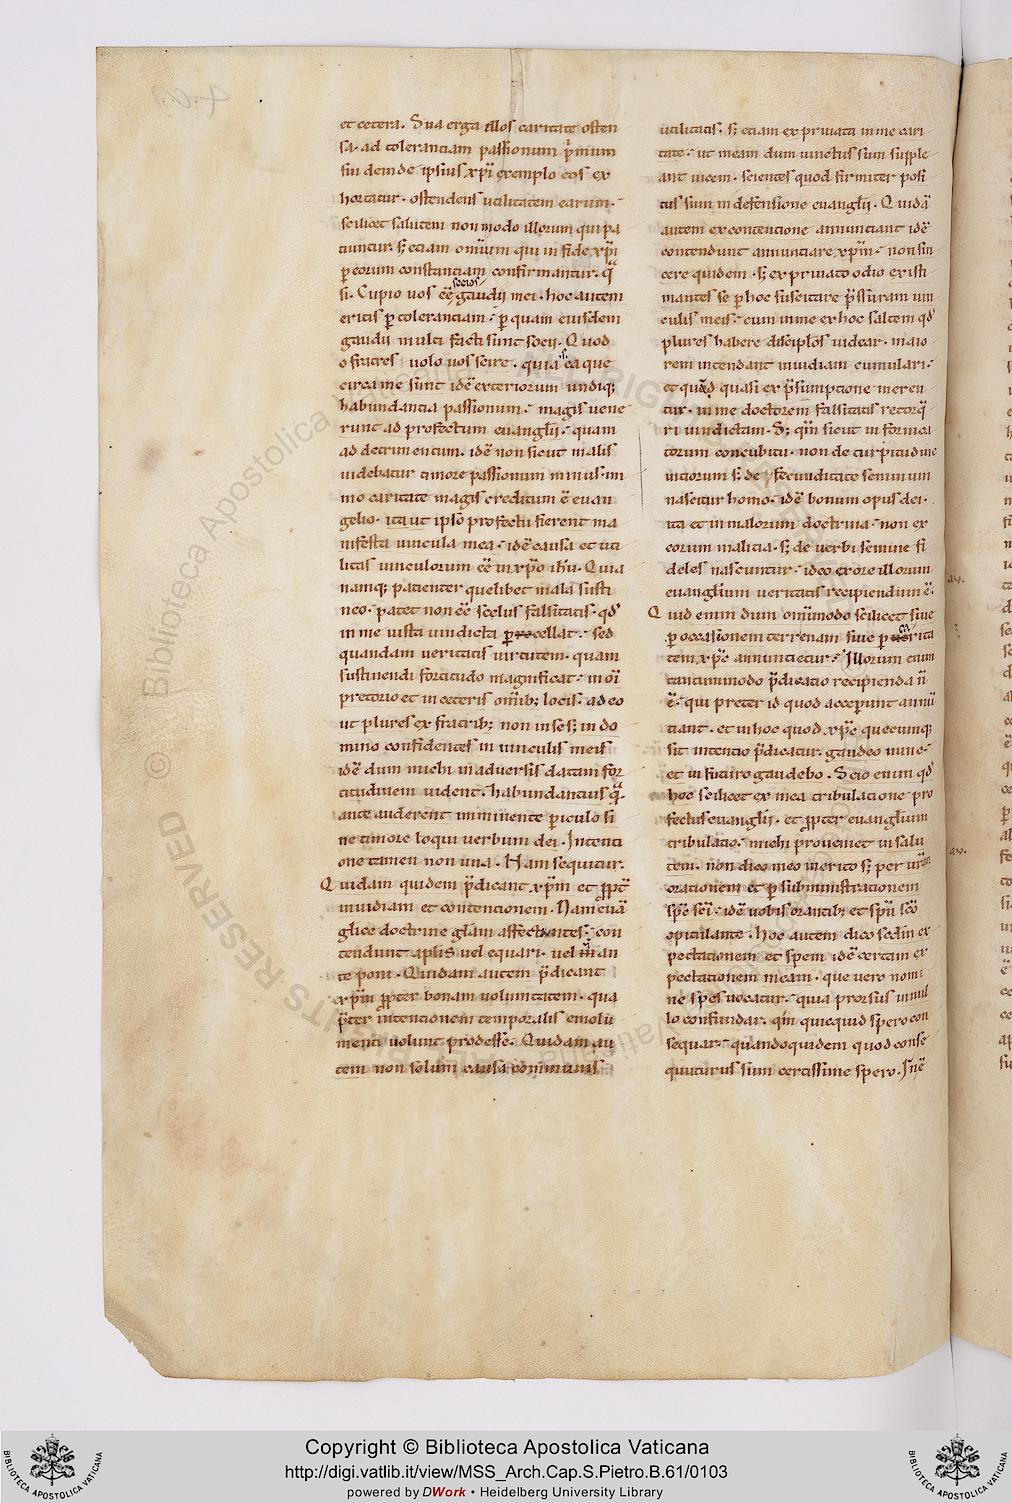 et cetera. Sua erga illos caritate osten
sa. ad tolerantiam passionum p̄mum
sui deinde ipsius xp̄i exemplo eos ex
hortatur. ostendens utilitatem earum.
scilicet salutem non modo illorum qui pa
tiuntur. sꝫ etiam omnium qui in fide xp̄i
ꝑ eorum constantiam confirmantur. q̄
si. Cupio uos eē socios gaudii mei. hoc autem
eritis ꝑ tolerantiam. ꝑ quam eiusdem
gaudii multi facti sunt socii. Quod
o fratres uolo uos scire. quia ea que
circa me sunt idē exteriorum undiqꝫ
habundantia passionum. magis uene
runt ad profectum euanglii. quam
ad detrimentum. idē non sicut malis
uidebatur timore passionum minus. im
mo caritate magis creditum ē euan
gelio. ita ut ipso profectu fierent ma
nifesta uincula mea. idē causa et uti
litas uinculorum eē in xp̄o ihu. Quia
namqꝫ patienter quelibet mala susti
neo. patet non eē scelus falsitatis. qd̄
in me iusta uindicta ꝑcellat. sed
quandam ueritatis uirtutem. quam
sustinendi fortitudo magnificat. in oī
pretorio et in ceteris omibꝫ locis. adeo
ut plures ex fratribꝫ non in se sꝫ in do
mino confidentes in uinculis meis
idē dum michi in aduersis datam for
titudinem uident. habundantius q̄
ante auderent imminente periculo si
ne timore loqui uerbum dei. Intenti
one tamen non una. Nam sequitur.
Quidam quidem p̄dicant xp̄m et ꝓpt̄
inuidiam et contentionem. Nam euā
glice doctrine glam affectantes. con
tendunt aplis uel equari. uel an
te poni. Quidam autem p̄dicant
xp̄m ꝓpter bonam uoluntatem. quia
p̄ter intentionem temporalis emolu
menti uolunt prodesse. Quidam au
tem non solum causa communis
utilitatis. sꝫ etiam ex priuata in me cari
tate. ut meam dum uinctus sum supple
ant uicem. scientes quod firmiter posi
tus sum in defensione euanglii. Quidā
autem ex contentione annuntiant idē
contendunt annuntiare xp̄m. non sin
cere quidem. sꝫ ex priuato odio existi
mantes se ꝑ hoc suscitare p̄ssuram uin
culis meis. cum in me ex hoc saltem qd̄
plures habere discip̄los uidear. maio
rem intendant inuidiam cumulari.
et quod quasi ex p̄sumptione meren
tur. in me doctorem falsitatis retorq̄
ri uindictam. Sꝫ qm̄ sicut in fornica
torum concubitu. non de turpitudine
uitiorum sꝫ de fecunditate seminum
nascitur homo. idē bonum opus dei.
ita et in malorum doctrina. non ex
eorum malitia. sꝫ de uerbi semine fi
deles nascuntur. ideo ex ore illorum
euanglium ueritatis recipiendum ē.
Quid enim dum omimodo scilicet siue
ꝑ occasionem terrenam siue ꝑ uerita
tem xp̄c annuncietur. Illorum enim
tantummodo p̄dicatio recipienda n̄
ē. qui preter id quod accepunt annū
tiant. et in hoc quod xp̄c quecumqꝫ
sit intentio p̄dicatur. gaudeo nunc.
et in futuro gaudebo. Scio enim qd̄
hoc scilicet ex mea tribulatione pro
fectus euanglii. et ꝓpter euanglium
tribulatio. michi proueniet in salu
tem. non dico meo merito sꝫ per ur̄am
orationem et ꝑ subministrationem
sp̄c sc̄i. idē uobis orantibꝫ et sp̄u sc̄o
opitulante. Hoc autem dico secdm ex
pectationem et spem idē certam ex
pectationem meam. que uero nomi
ne spes uocatur. quia prorsus in nul
lo confundar. qm̄ quicquid spero con
sequar. quandoquidem quod conse
quuturus sum certissime spero.
Copyright © Biblioteca Apostolica Vaticana
http://digi.vatlib.it/view/MSS_Arch.Cap.S.Pietro.B.61/0103
powered by DWork • Heidelberg University Library
BIBLIOTECA APOSTOLICA VATICANA
BIBLIOTECA APOSTOLICA VATICANA